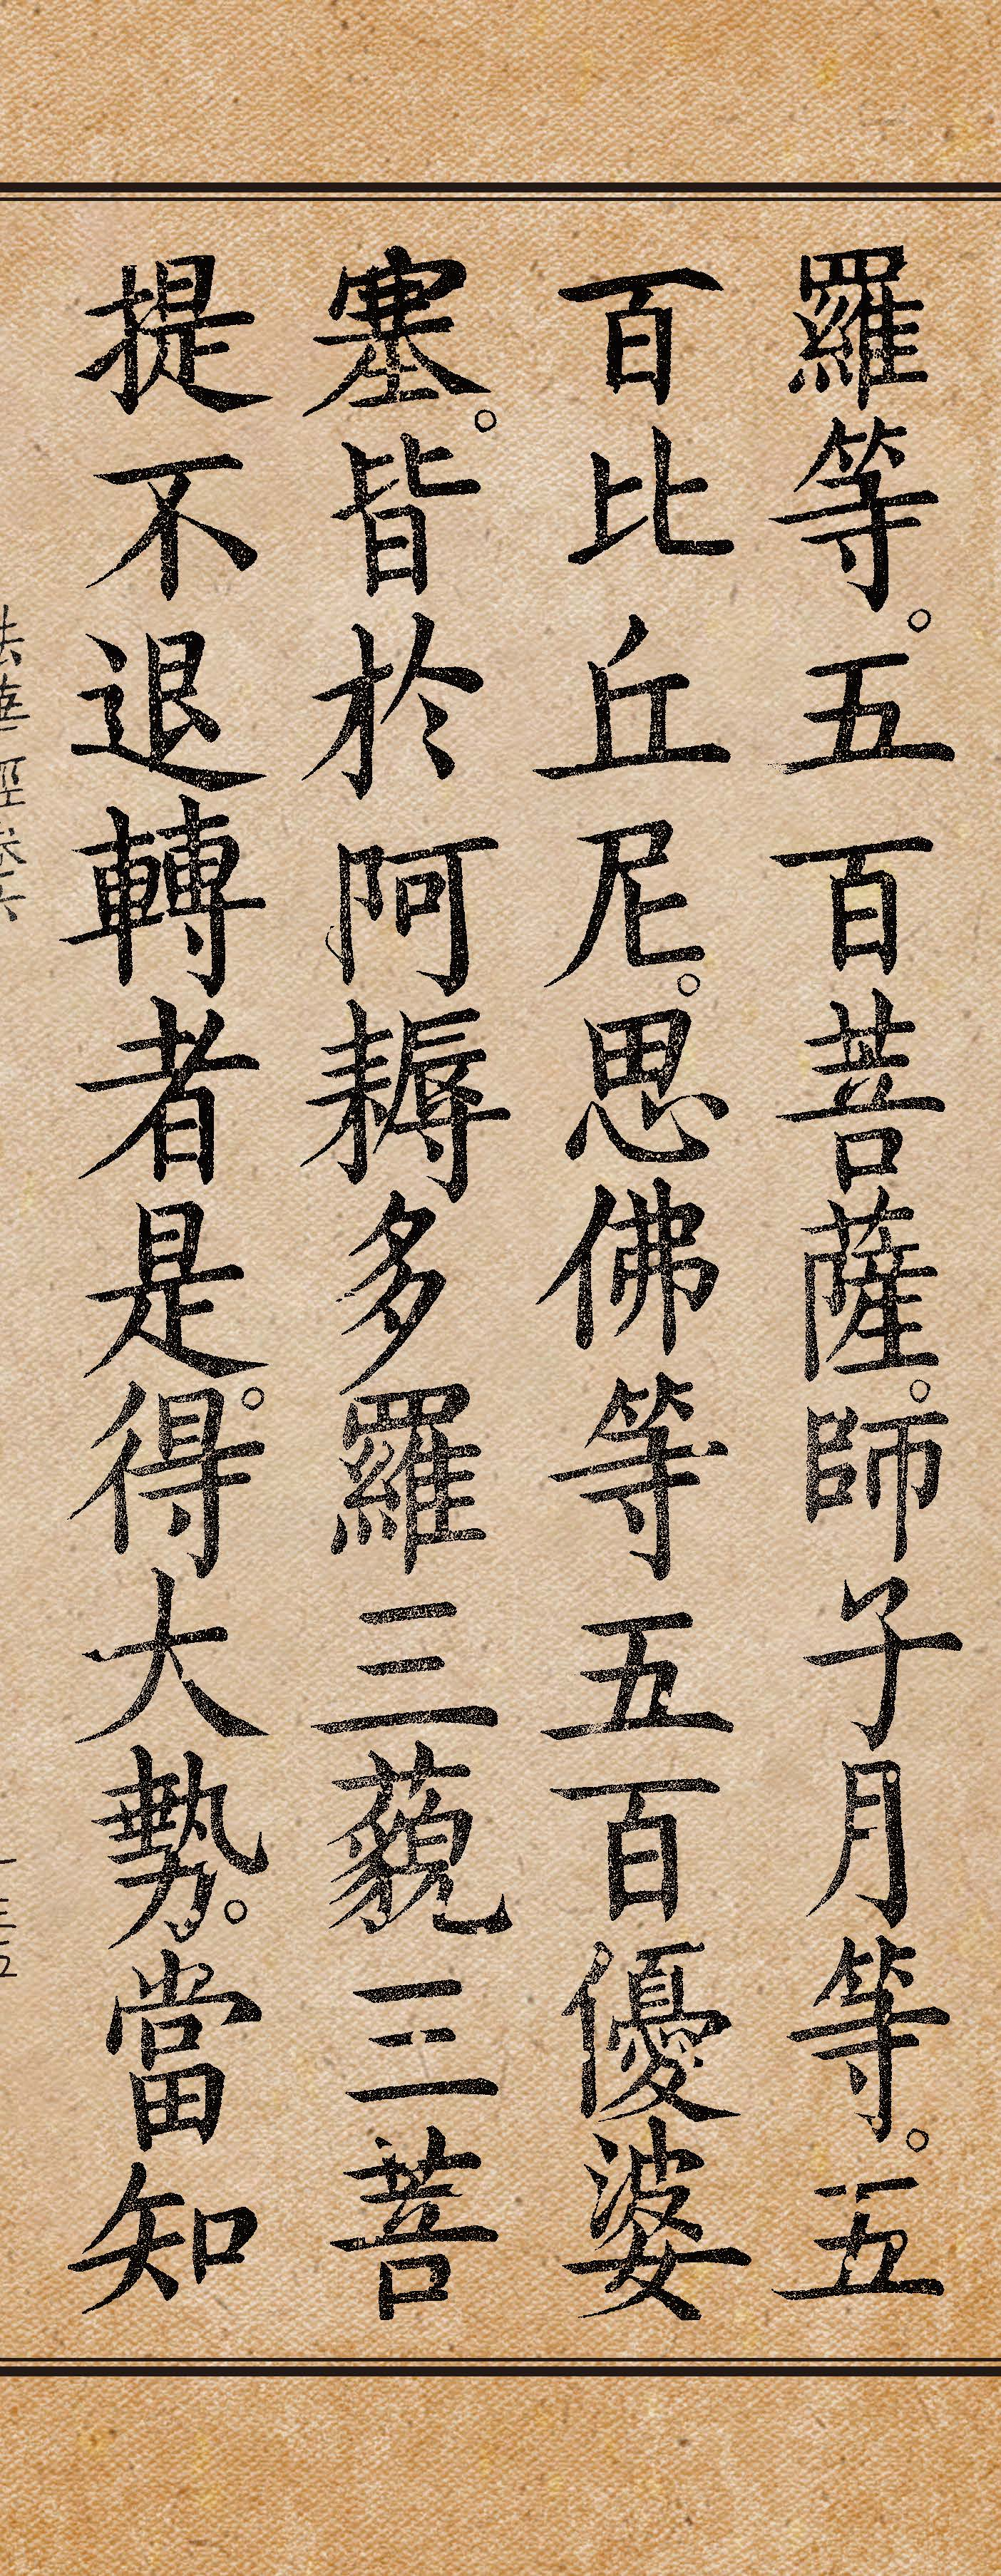 羅等。五百菩薩。師子月等。五
百比丘尼。思佛等五百優婆
塞。皆於阿耨多羅三藐三菩
提不退轉者是。得大勢。當知
法華經卷六